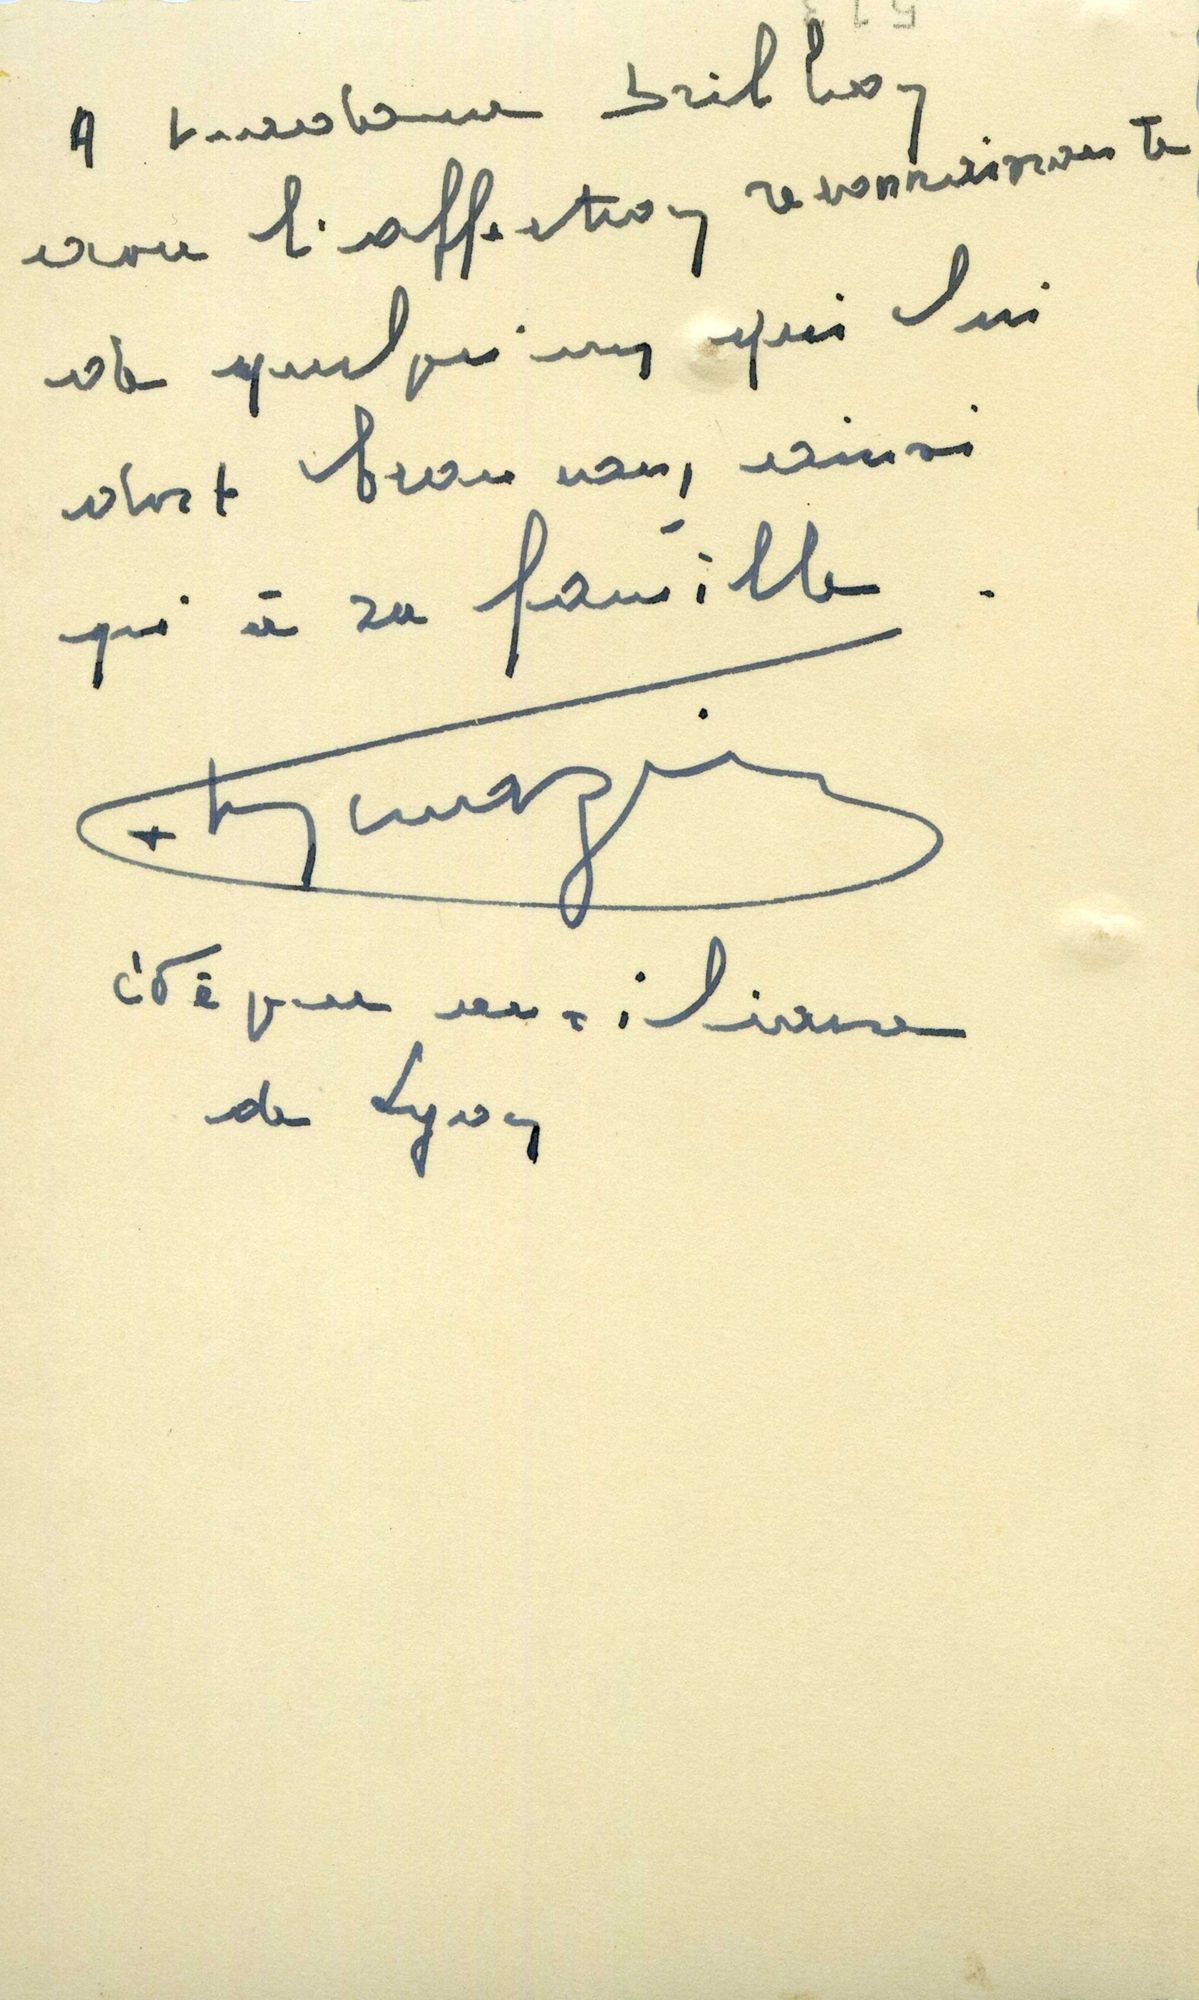 A Madame Brilhoy
avec l'affection reconnaissante
de quelqu'un qui lui
doit beaucoup, ainsi
qu'à sa famille.
+ Mazi
Evêque auxiliaire
de Lyon